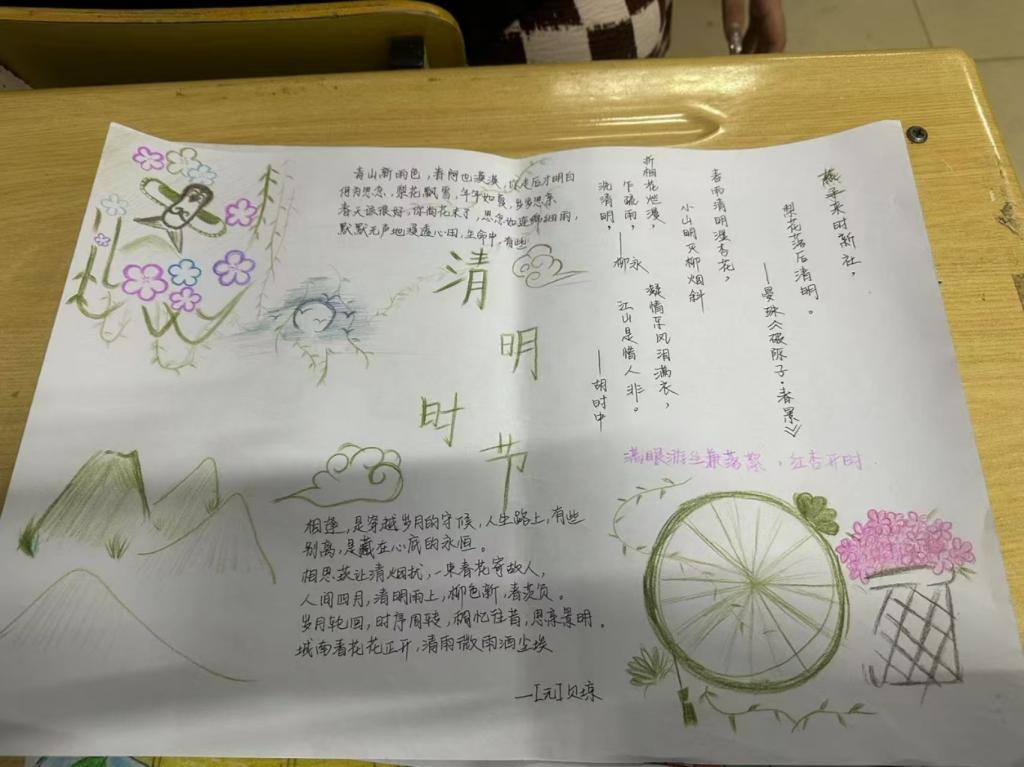 青山新雨色，春阿也漠漠，你走后才明白
何为思念，梨花飘雪，年年如复，岁岁思亲
春天该很好，你尚花未了，思念如连绵细雨，
默默无声地浸透心田，生命中，有些
清
明
时
节
燕子来时新社，
梨花落后清明。
——晏殊《破陈子·春景》
杏雨清明湿杏花，
小山明灭柳烟斜
折桐花烂漫，
乍疏雨，
洗清明，
——柳永
凝情东风泪满衣，
江山是惜人非。
——胡时中
满眼游丝兼落絮，红杏开时
相逢，是穿越岁月的守候，人生路上，有些
别离，是藏在心底的永恒。
相思莫让清烟扰，一束春花寄故人，
人间四月，清明雨上，柳色新，春莫负。
岁月轮回，时序周转，稠忆往昔，思亲景明。
城南春花花正开，清雨微雨洒尘埃
—[元]贝琼